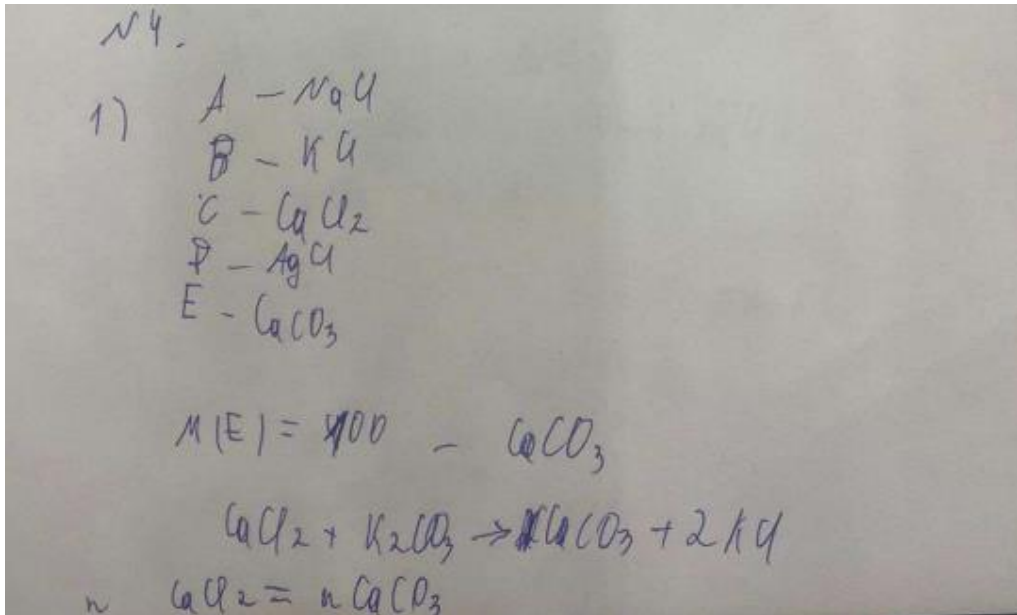 N4.
1) A – NaCl
B – KCl
C – CaCl2
D – AgCl
E – CaCO3
M(E) = 100 – CaCO3
CaCl2 + K2CO3 → CaCO3 + 2KCl
n CaCl2 = n CaCO3